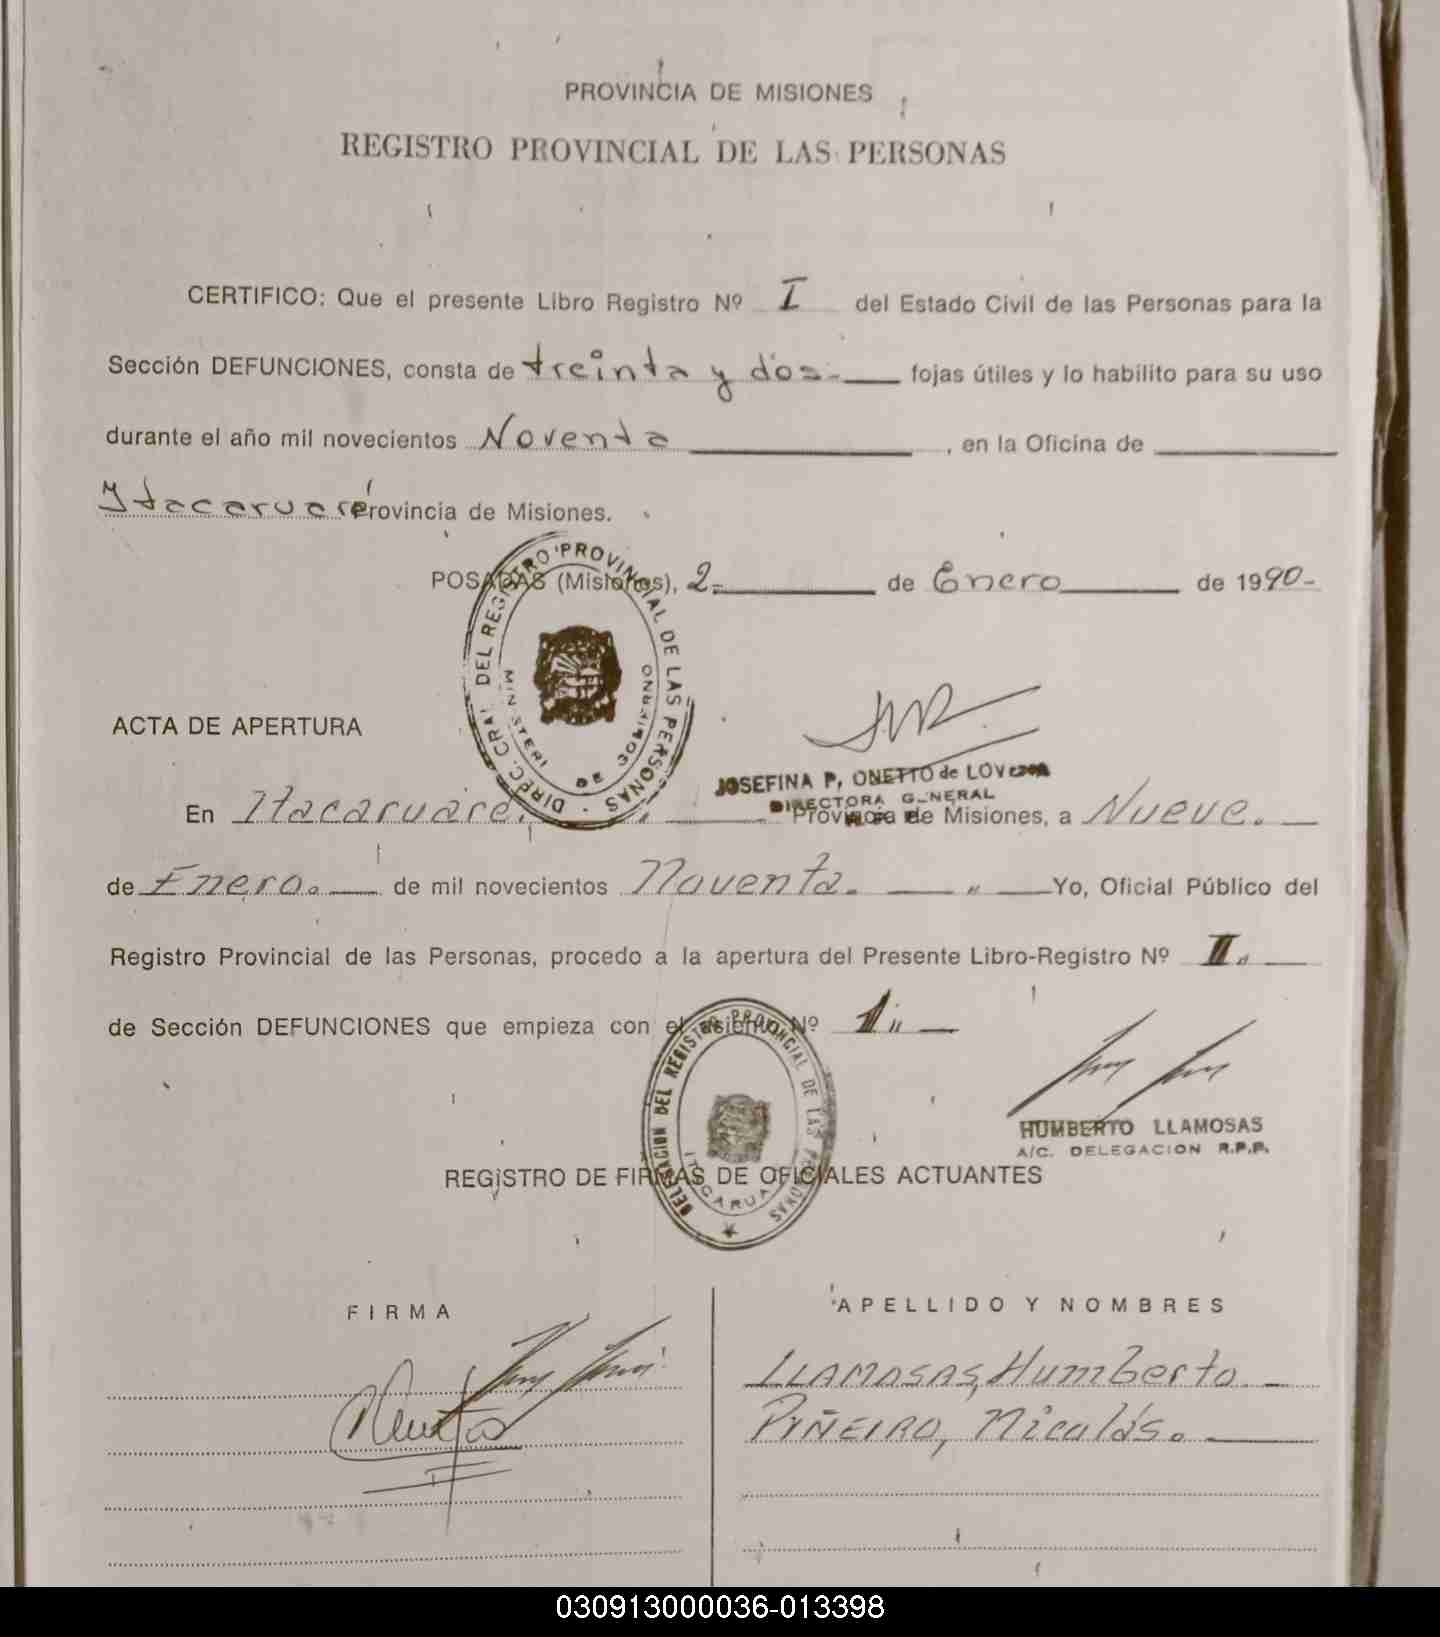 PROVINCIA DE MISIONES
REGISTRO PROVINCIAL DE LAS PERSONAS
CERTIFICO: Que el presente Libro Registro Nº I del Estado Civil de las Personas para la
Sección DEFUNCIONES, consta de treinta y dos.- fojas útiles y lo habilito para su uso
durante el año mil novecientos Noventa , en la Oficina de
Ytacaruaré Provincia de Misiones.
POSADAS (Misiones), 2.- de Enero de 1990-
DIREC. GRAL DEL REGISTRO PROVINCIAL DE LAS PERSONAS
MINISTERI DE GOBIERNO
ACTA DE APERTURA
JOSEFINA P. ONETTO de LOVERA
DIRECTORA GENERAL
En Itacaruaré. Provincia de Misiones, a Nueve.
de Enero. de mil novecientos Noventa. " Yo, Oficial Público del
Registro Provincial de las Personas, procedo a la apertura del Presente Libro-Registro Nº II.
de Sección DEFUNCIONES que empieza con el asiento Nº 1"
DELEGACION DEL REGISTRO PROVINCIAL DE LAS PERSONAS
HUMBERTO LLAMOSAS
A/C. DELEGACION R.P.P.
REGISTRO DE FIRMAS DE OFICIALES ACTUANTES
FIRMA
APELLIDO Y NOMBRES
LLAMOSAS, Humberto
PIÑEIRO, Nicolás.
030913000036-013398